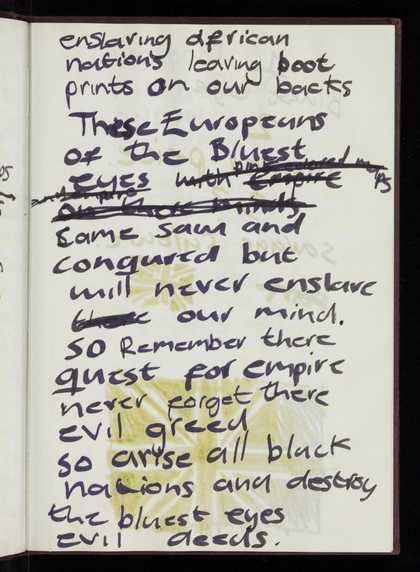 enslaving african
nations leaving boot
prints on our backs
These Europeans
of the Bluest
eyes with Empire
on there minds
came saw and
conqured but
will never enslave
our mind.
so Remember there
quest for empire
never forget there
evil greed
so arise all black
nations and destroy
the bluest eyes
evil deeds.